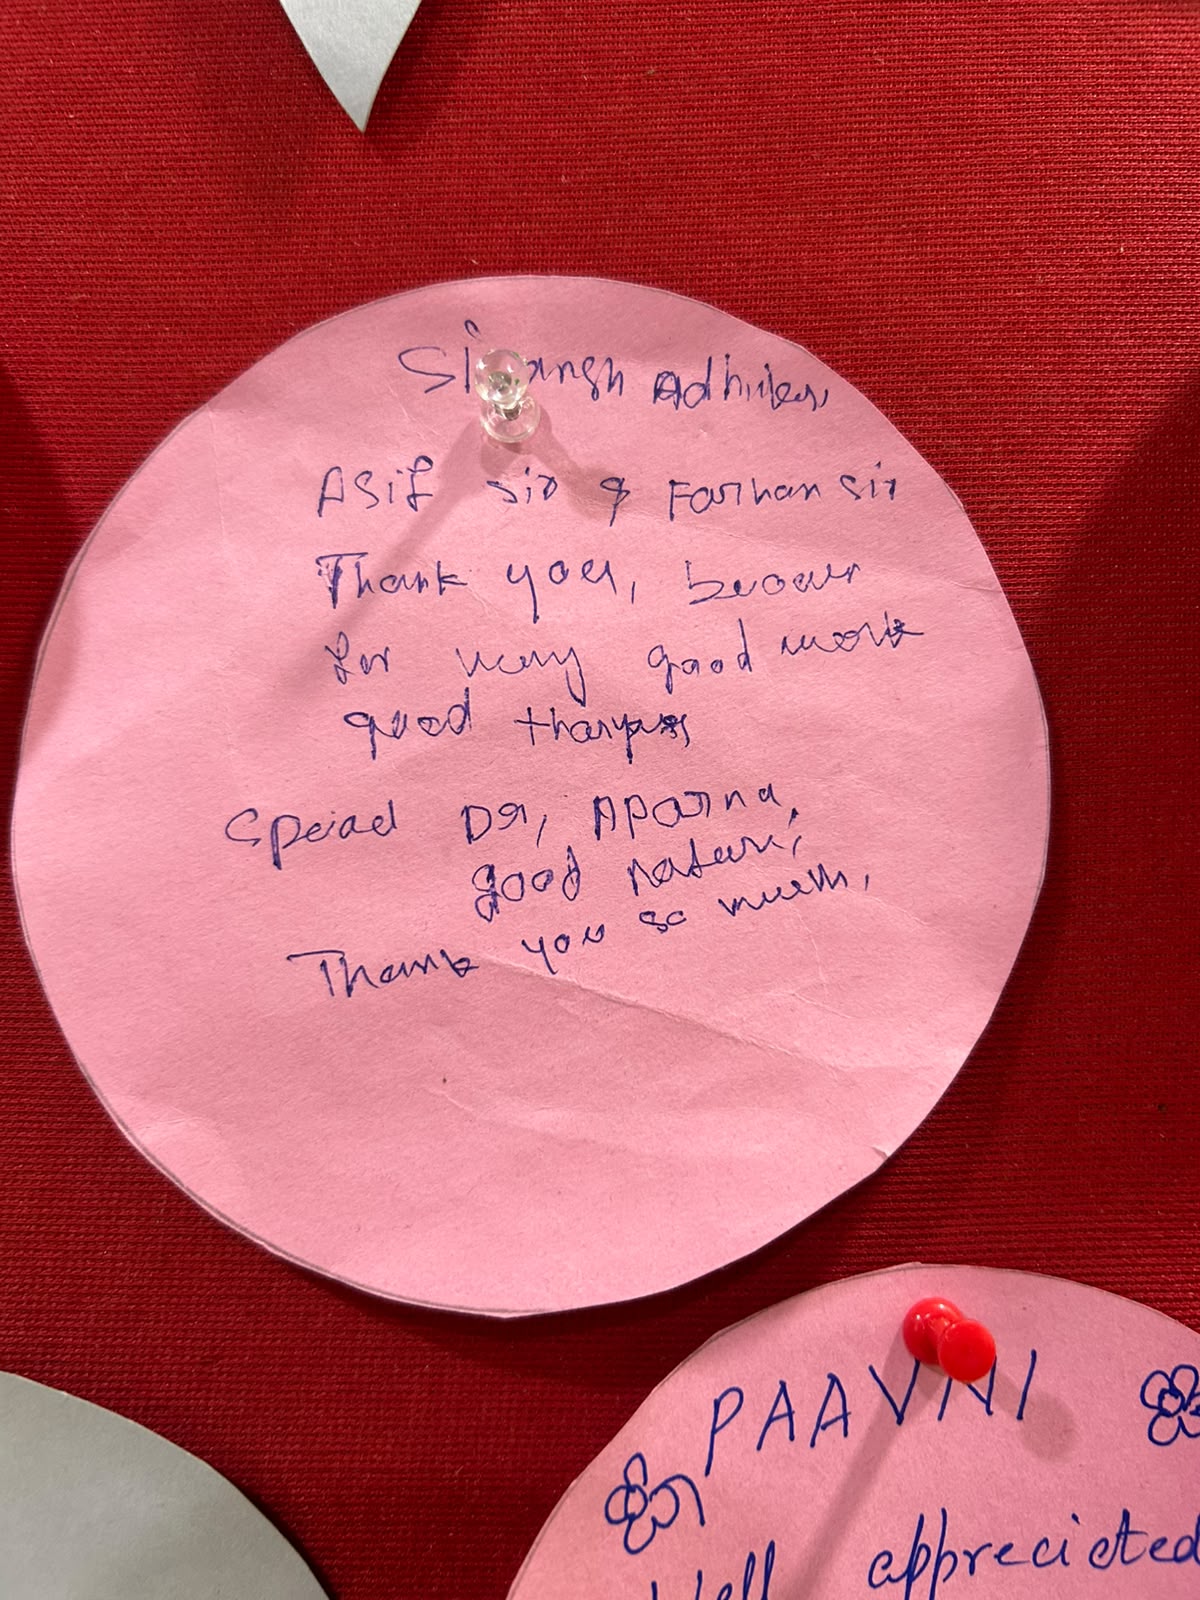 Adhikari
Asif sir & Farhan sir
Thank you,
for very good work
good
Special Dr, Aparna,
good nature,
Thank you so much,
PAAVNI
Well appreciated